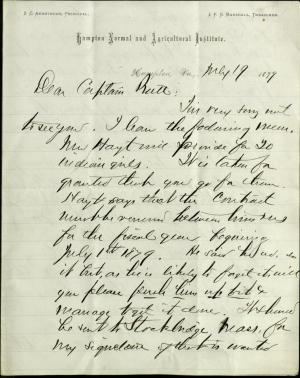 S. C. ARMSTRONG, PRINCIPAL. J. F. B. MARSHALL, TREASURER.
Hampton Normal and Agricultural Institute.
Hampton, Va., July 19 1879
Dear Captain Pratt:
I'm very sorry not
to see you. I leave the following mem.
Mr Hayt will provide for 20
indian girls. It is taken for
granted that you go for them.
Hayt says that the Contract
must be renewed between him & us
for the fiscal year beginning
July 1st 1879. He said he'd
it but, as he is likely to forget it, will
you please punch him up bit &
manage to get it done. It should
be sent to Stockbridge, Mass, for
my signature if that is wanted